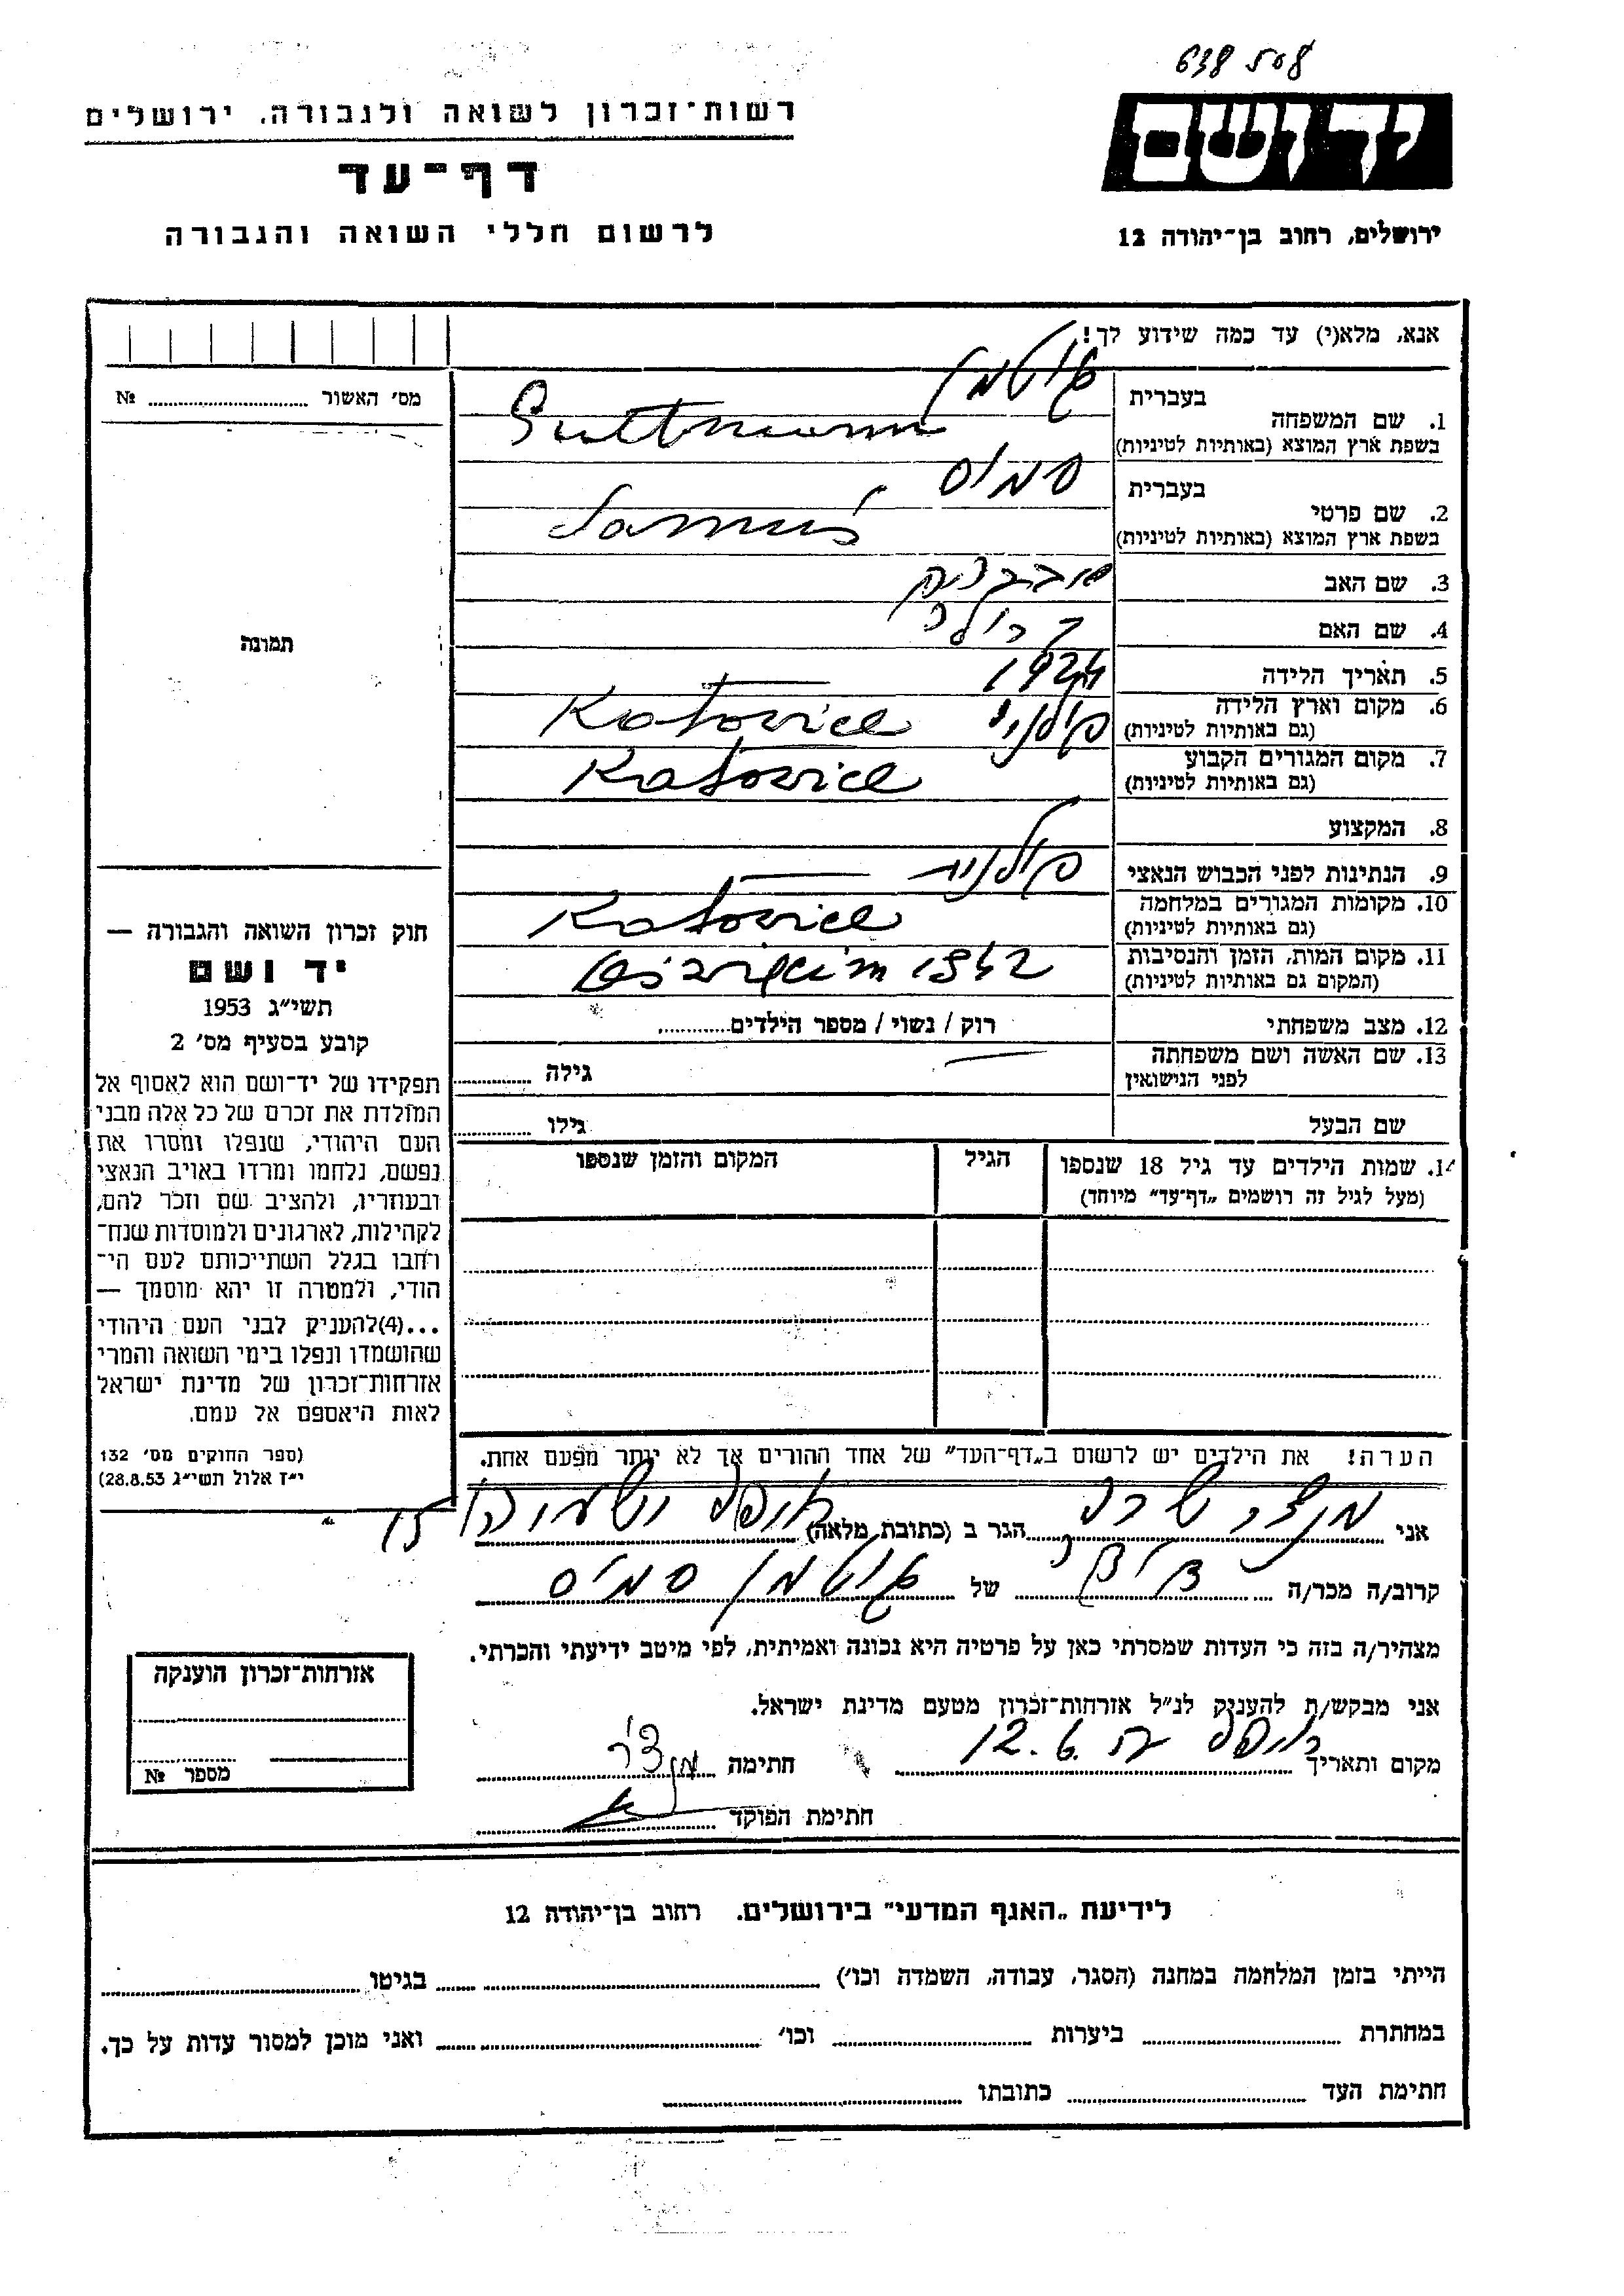 638 508
יד ושם
ירושלים, רחוב בן־יהודה 12
רשות־זכרון לשואה ולגבורה, ירושלים
דף־עד
לרשום חללי השואה והגבורה
אנא, מלא(י) עד כמה שידוע לך!
1. שם המשפחה
בעברית גוטמן
בשפת ארץ המוצא (באותיות לטיניות) Guttmann
2. שם פרטי
בעברית סמוס
בשפת ארץ המוצא (באותיות לטיניות) Samuś
3. שם האב
4. שם האם
5. תאריך הלידה 1924
6. מקום וארץ הלידה
(גם באותיות לטיניות) פולני Katovice
7. מקום המגורים הקבוע
(גם באותיות לטיניות) Katovice
8. המקצוע
9. הנתינות לפני הכבוש הנאצי פולנית
10. מקומות המגורים במלחמה
(גם באותיות לטיניות) Katovice
11. מקום המות, הזמן והנסיבות
(המקום גם באותיות לטיניות) 1942
12. מצב משפחתי רוק / נשוי / מספר הילדים
13. שם האשה ושם משפחתה
לפני הנישואין גילה
שם הבעל גילו
14. שמות הילדים עד גיל 18 שנספו
(מעל לגיל זה רושמים „דף־עד” מיוחד)
הגיל
המקום והזמן שנספו
הערה! את הילדים יש לרשום ב„דף־העד” של אחד ההורים אך לא יותר מפעם אחת.
מס׳ האשור №
תמונה
חוק זכרון השואה והגבורה —
יד ושם
תשי״ג 1953
קובע בסעיף מס׳ 2
תפקידו של יד־ושם הוא לאסוף אל
המולדת את זכרם של כל אלה מבני
העם היהודי, שנפלו ומסרו את
נפשם, נלחמו ומרדו באויב הנאצי
ובעוזריו, ולהציב שם וזכר להם,
לקהילות, לארגונים ולמוסדות שנח־
רחבו בגלל השתייכותם לעם הי־
הודי, ולמטרה זו יהא מוסמך —
...(4)להעניק לבני העם היהודי
שהושמדו ונפלו בימי השואה והמרי
אזרחות־זכרון של מדינת ישראל
לאות היאספם אל עמם.
(ספר החוקים מס׳ 132
י״ז אלול תשי״ג 28.8.53)
אני מנצר שרה הגר ב (כתובת מלאה) חיפה ישעיהו 15
קרוב/ה מכר/ה של גוטמן סמוס
מצהיר/ה בזה כי העדות שמסרתי כאן על פרטיה היא נכונה ואמיתית, לפי מיטב ידיעתי והכרתי.
אני מבקש/ת להעניק לנ״ל אזרחות־זכרון מטעם מדינת ישראל.
מקום ותאריך חיפה 12.6. חתימה
חתימת הפוקד
אזרחות־זכרון הוענקה
מספר №
לידיעת „האגף המדעי” בירושלים, רחוב בן־יהודה 12
הייתי בזמן המלחמה במחנה (הסגר, עבודה, השמדה וכו׳) בגיטו
במחתרת ביערות וכו׳ ואני מוכן למסור עדות על כך.
חתימת העד כתובתו